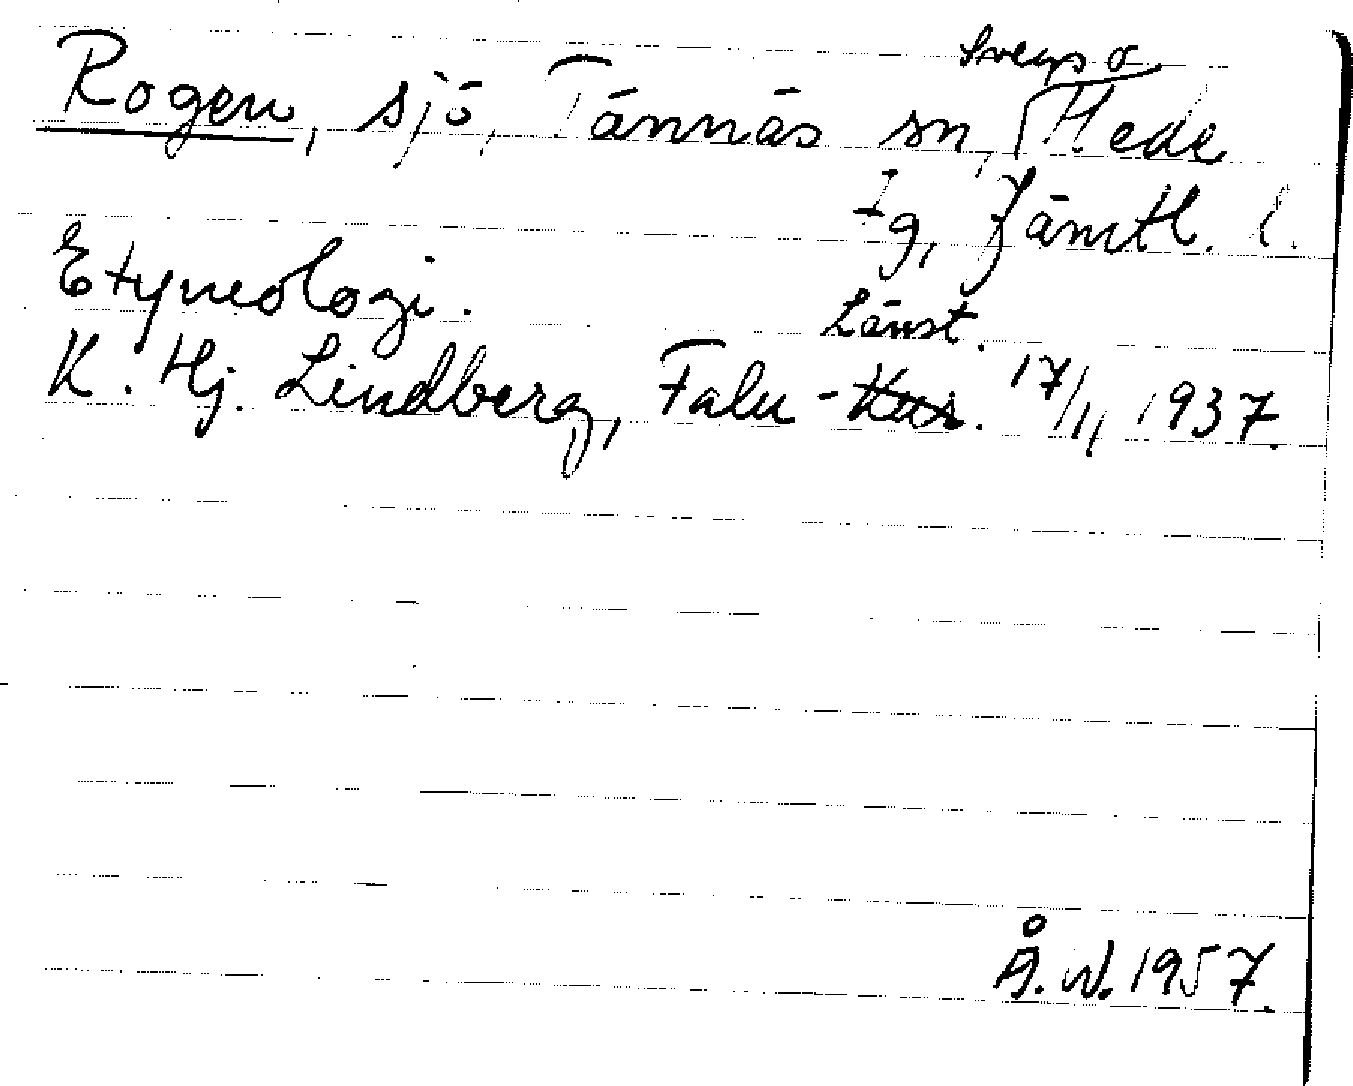 Rogen, sjö, Tännäs sn, Svegs o Hede
tg, Jämtl. l.
Etymologi.
K. Hj. Lindberg, Falu-Kur. Länst. 17/11 1937.
Å. W. 1957.